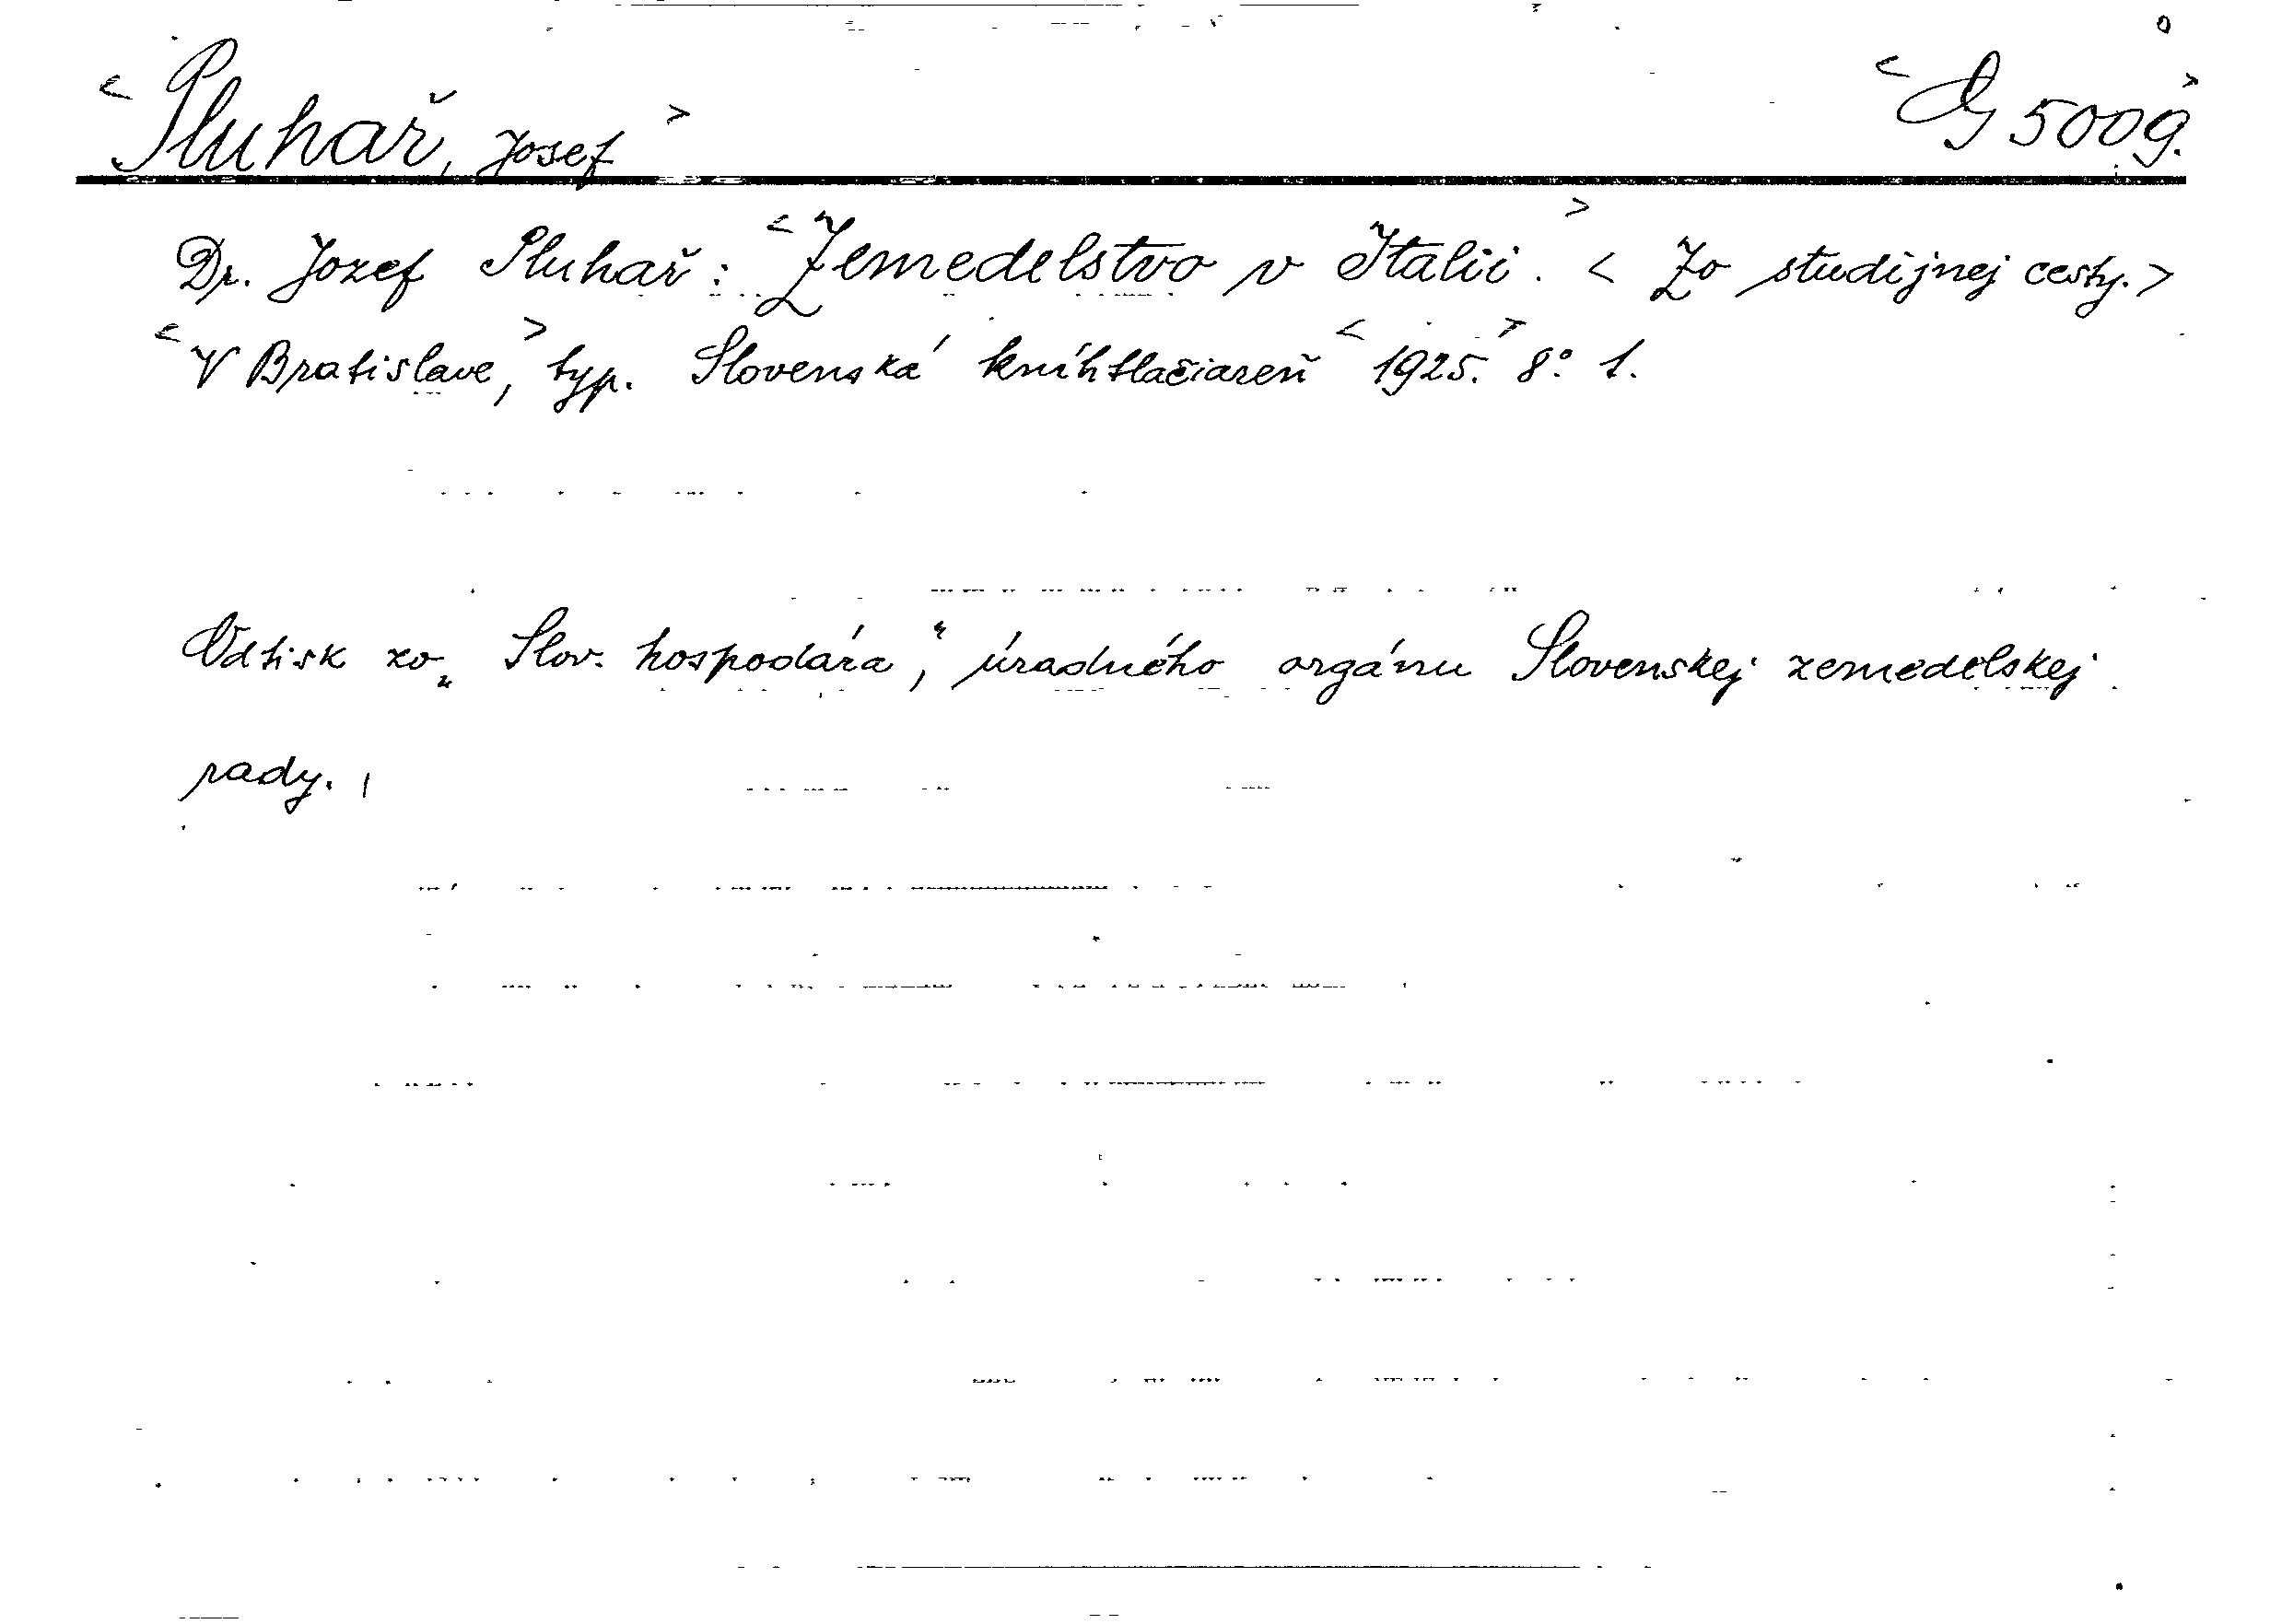 < Pluhař, Josef > < G 5009. >
Dr. Jozef Pluhař: < Zemedelstvo v Italii. > < Zo studijnej cesty. >
< V Bratislave, > typ. Slovenská kníhtlačiareň < 1925. > 8° 1.
Odtisk zo „Slov. hospodára," úradného orgánu Slovenskej zemedelskej
rady.